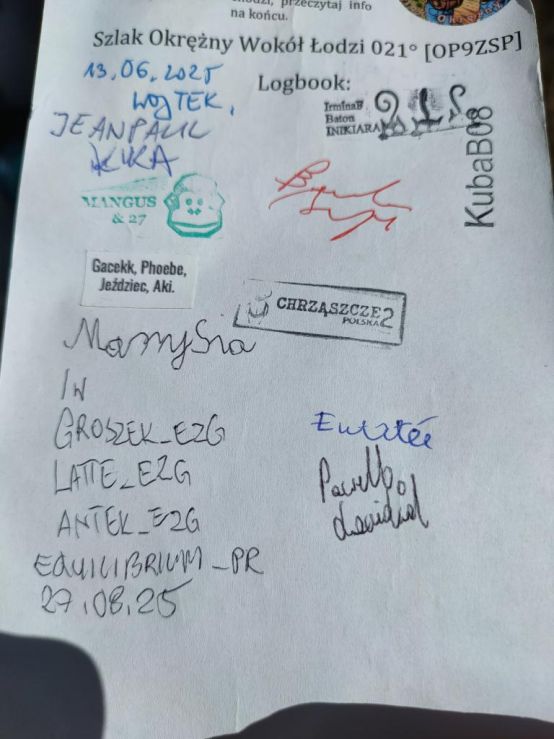 przeczytaj info
na końcu.
Szlak Okrężny Wokół Łodzi 021° [OP9ZSP]
13.06.2025
WOJTEK,
Logbook:
JEANPAUL
KIKA
IrminaB
Baton
INIKIARA
KubaB08
MANGUS
& 27
Gacekk, Phoebe,
Jeździec, Aki.
CHRZĄSZCZE2
POLSKA
MamySia
IN
GROSZEK_EZG
LATTE_EZG
ANTEK_EZG
EQUILIBRIUM_PR
27.08.25